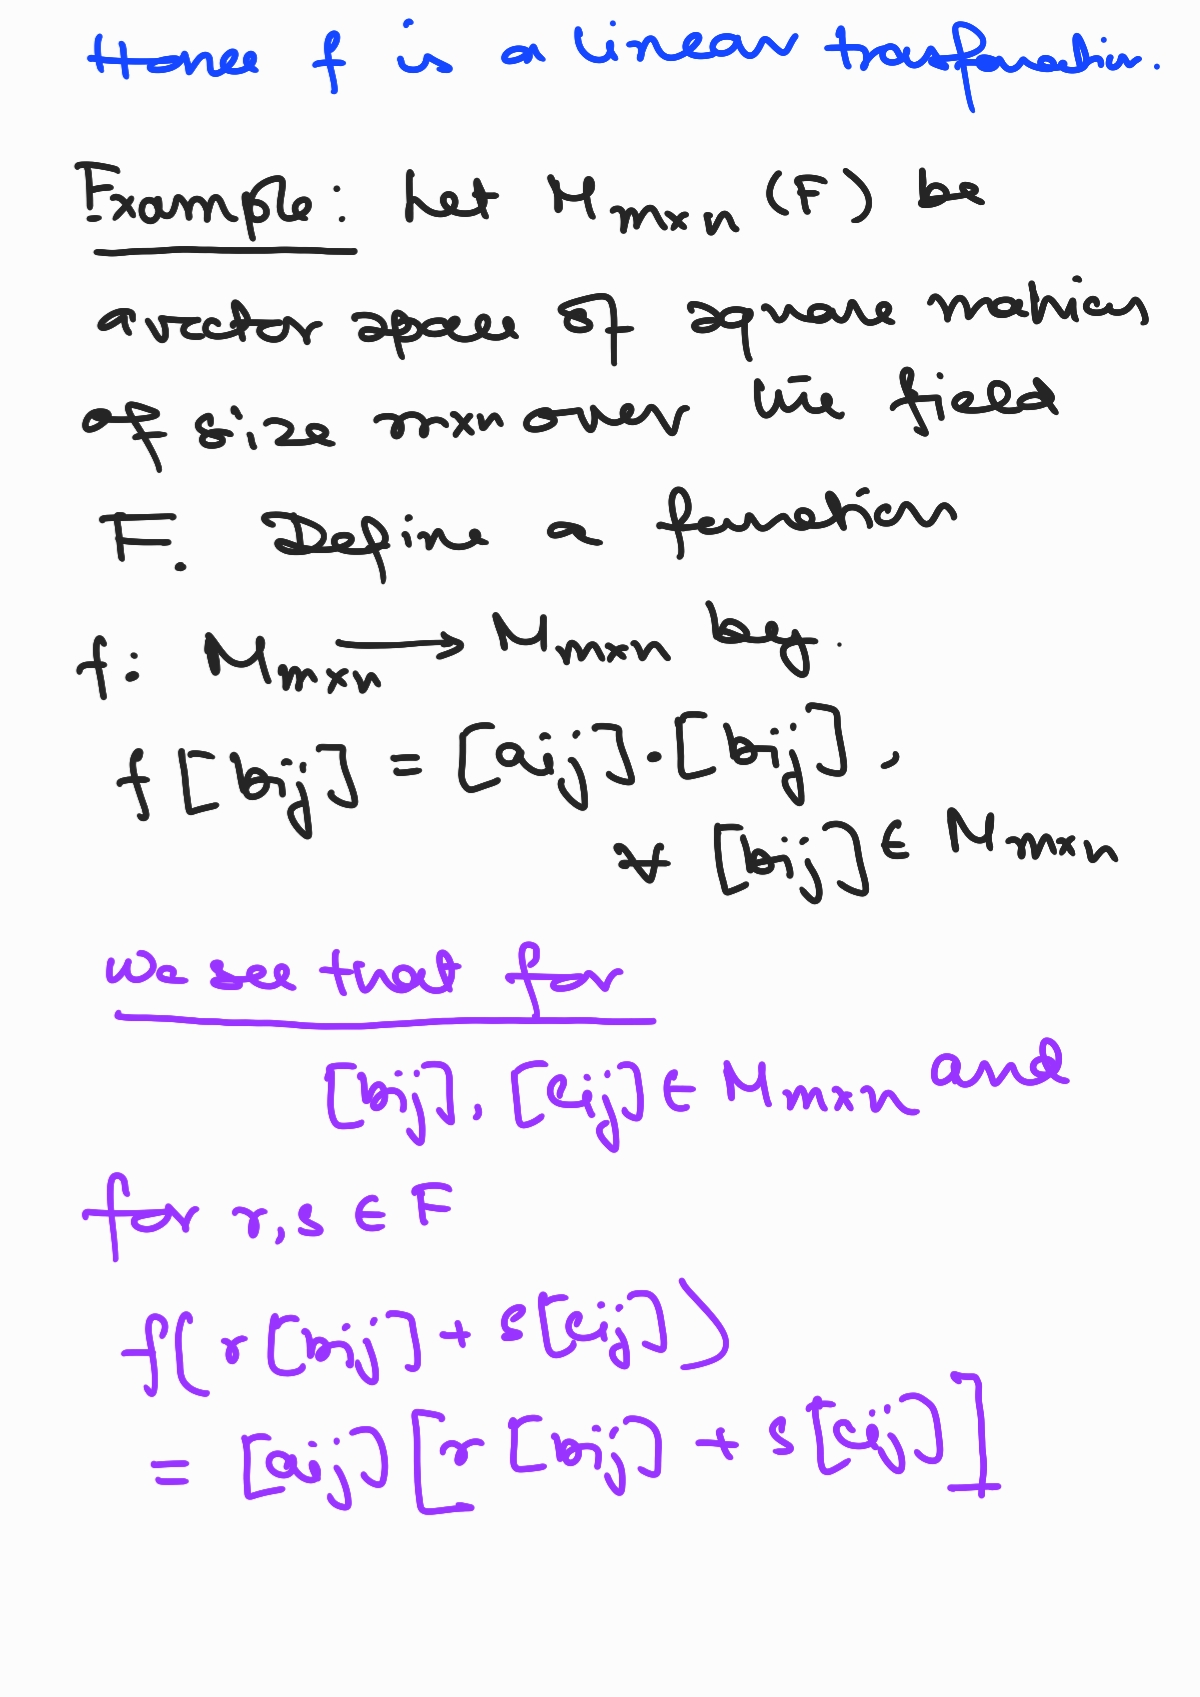 Hence f is a linear transformation.
Example: Let M_{m×n} (F) be
a vector space of square matrices
of size m×n over the field
F. Define a function
f: M_{m×n} → M_{m×n} by
f [bij] = [aij]·[bij],
∀ [bij] ∈ M_{m×n}
we see that for
[bij], [cij] ∈ M_{m×n} and
for r,s ∈ F
f( r[bij] + s[cij] )
= [aij] [ r [bij] + s[cij] ]